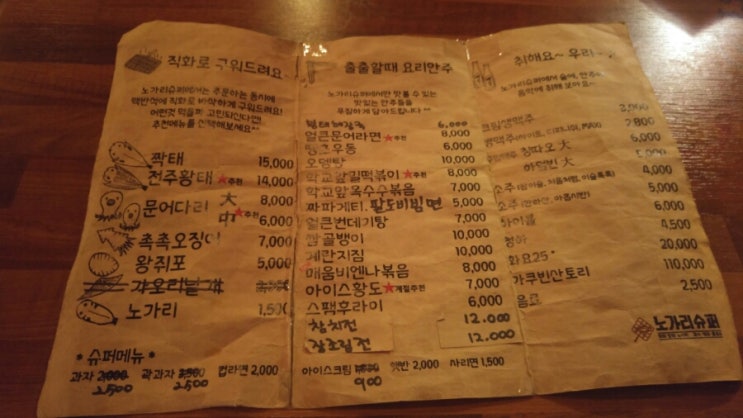 직화로 구워드려요~
노가리슈퍼에서는 주문하는 동시에
맥반석에 직화로 바삭하게 구워드려요!
어떤것 먹을까 고민된다면?
추천메뉴를 선택해보세요^^
짝태 15,000
전주황태 ★추천 14,000
문어다리 大 8,000
中 ★추천 6,000
촉촉오징어 7,000
왕쥐포 5,000
노가리 1,500
* 슈퍼메뉴 *
과자 2,500 곽과자 2,500 컵라면 2,000
출출할때 요리안주
노가리슈퍼에서만 맛볼 수 있는
맛있는 안주들을
푸짐하게 담아드립니다^^
황태해장국 6,000
얼큰문어라면 ★추천 8,000
땡초우동 6,000
오뎅탕 10,000
학교앞길떡볶이 ★추천 8,000
학교앞옥수수볶음 7,000
짜파게티.팔도비빔면 5,000
얼큰번데기탕 7,000
골뱅이 10,000
계란찜 10,000
매움비엔나볶음 8,000
아이스황도 ★계절추천 7,000
스팸후라이 6,000
참치전 12.000
장조림전 12.000
아이스크림 900 햇반 2,000 사리면 1,500
취해요~ 우리
노가리슈퍼에서 술에, 안주에
음악에 취해 보아요~
크림생맥주 3,000
칭따오 大
하얼빈 大
소주 5,000
소주 6,000
하이볼 4,500
화요25° 20,000
110,000
음료 2,500
노가리슈퍼